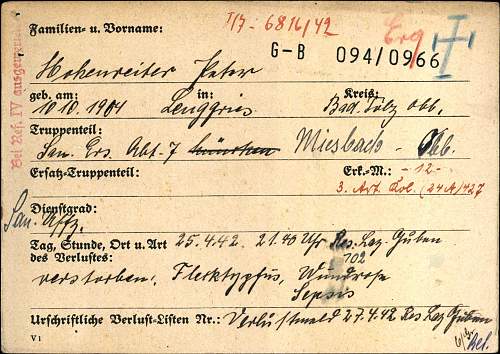 Familien- u. Vorname:
I/7- 6816/42
Erg I
G-B 094/0966
Hohenreiter Peter
geb. am: in: Kreis:
10.10.1901 Lenggries Bad Tölz Obb.
Truppenteil:
San. Ers. Abt. 7 München Miesbach - Obb.
Ersatz-Truppenteil: Erk.-M.: -12-
3. Art. Kol. (24A/427
Dienstgrad:
San. Uffz.
Tag, Stunde, Ort u. Art 25.4.42. 21.40 Uhr Res. Laz. Guben
des Verlustes: 702
verstorben, Flecktyphus, Wundrose
Sepsis
Urschriftliche Verlust-Listen Nr.: Verlustmeld 27.4.42 Res Laz Guben
V1
Bei Ref. IV ausgewertet